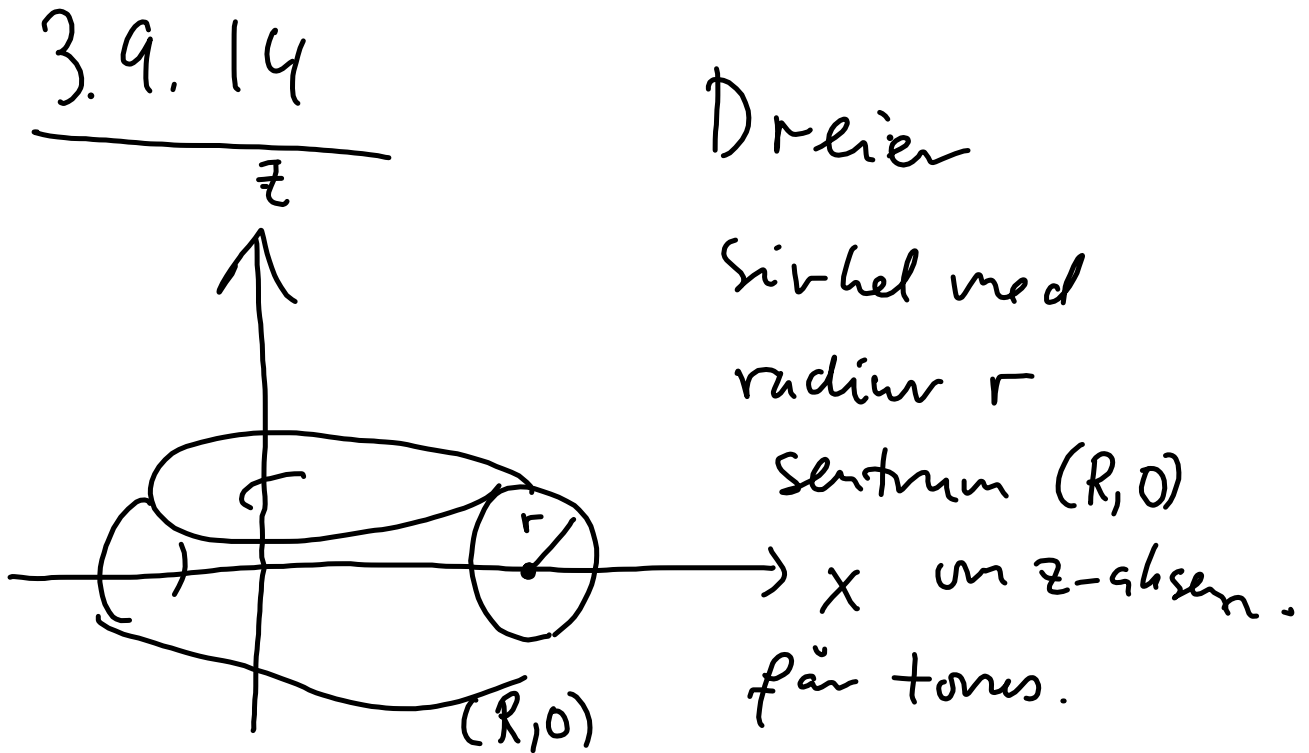 3.9.14
z
Dreier
sirkel med
radius r
sentrum (R,0)
om z-aksen.
får torus.
r
x
(R,0)